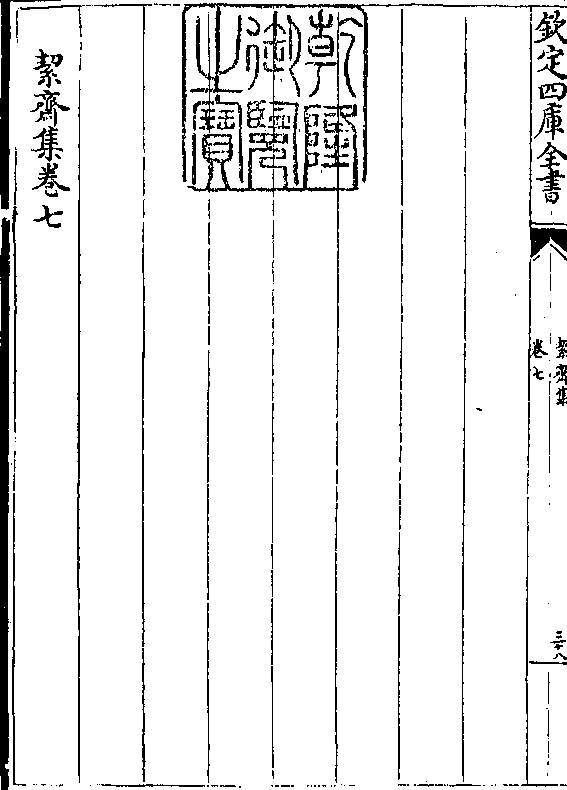 欽定四庫全書
絜齋集
卷七
三十八
乾隆
御覽
之寶
絜齋集卷七